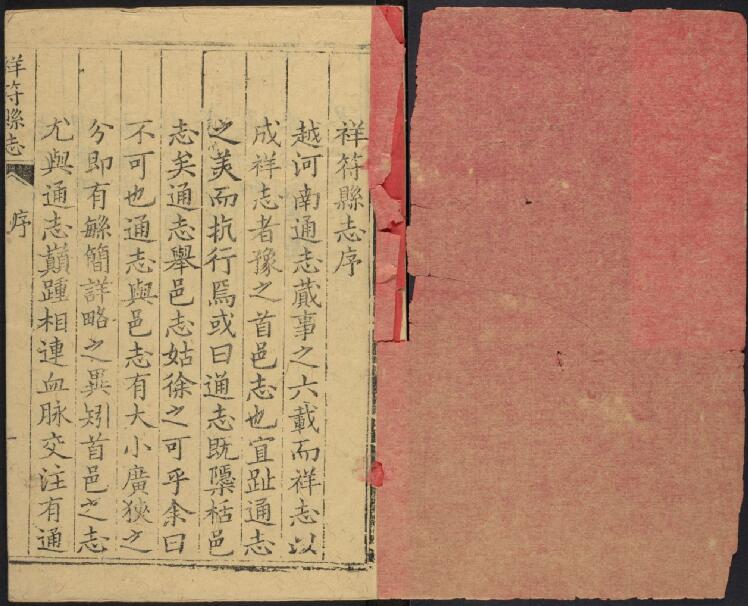 祥符縣志序
越河南通志蕆事之六載而祥志以
成祥志者豫之首邑志也宜趾通志
之美而抗行焉或曰通志既檃栝邑
志矣通志舉邑志姑徐之可乎余曰
不可也通志與邑志有大小廣狹之
分即有緐簡詳略之異矧首邑之志
尤與通志顛踵相連血脉交注有通
祥符縣志
序
一